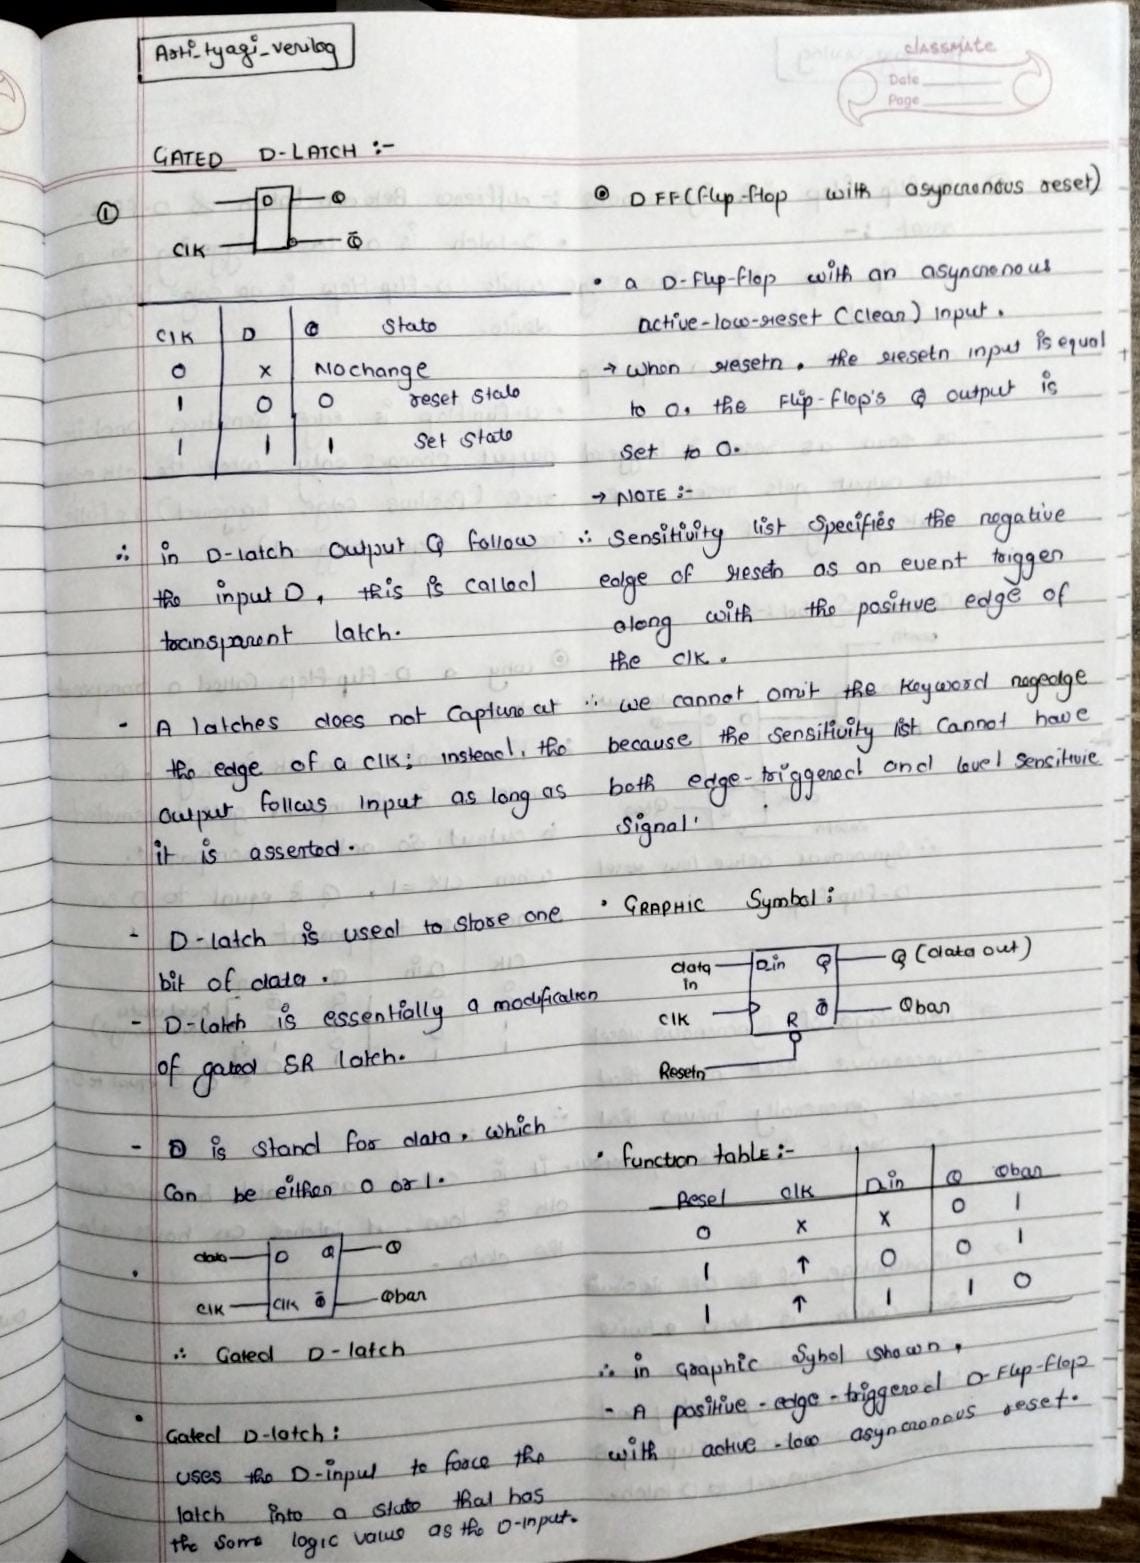 Arti_tyagi_verilog
classmate
Date
Page
GATED D-LATCH :-
①
D
Q
Clk
Q̄
Clk D Q State
0 x No change
1 0 0 reset State
1 1 1 Set State
∴ in D-latch output Q follow
the input D, this is called
transparent latch.
- A latches does not Capture at
the edge of a clk; instead, the
output follows input as long as
it is asserted.
- D-latch is used to store one
bit of data.
- D-latch is essentially a modification
of gated SR latch.
- D is stand for data, which
Can be either 0 or 1.
data D Q Q
Clk Clk Q̄ Qbar
∴ Gated D-latch
• Gated D-latch:
uses the D-input to force the
latch into a state that has
the same logic value as the D-input.
D FF (flip-flop with asyncronous reset)
• a D-flip-flop with an asyncronous
active-low-reset (clear) input.
→ When resetn, the resetn input is equal
to 0, the flip-flop's Q output is
set to 0.
→ NOTE :-
∴ Sensitivity list specifies the negative
edge of resetn as an event trigger
along with the positive edge of
the clk.
∴ we cannot omit the keyword negedge
because the sensitivity list cannot have
both edge-triggered and level sensitivie
signal.
• GRAPHIC Symbol:
data in Din Q Q (data out)
Clk Q̄ Qbar
R
Resetn
• function table :-
Reset Clk Din Q Qbar
0 x x 0 1
1 ↑ 0 0 1
1 ↑ 1 1 0
∴ in Graphic Sybol shown,
- A positive-edge-triggered D-flip-flop
with active-low asyncronous reset.